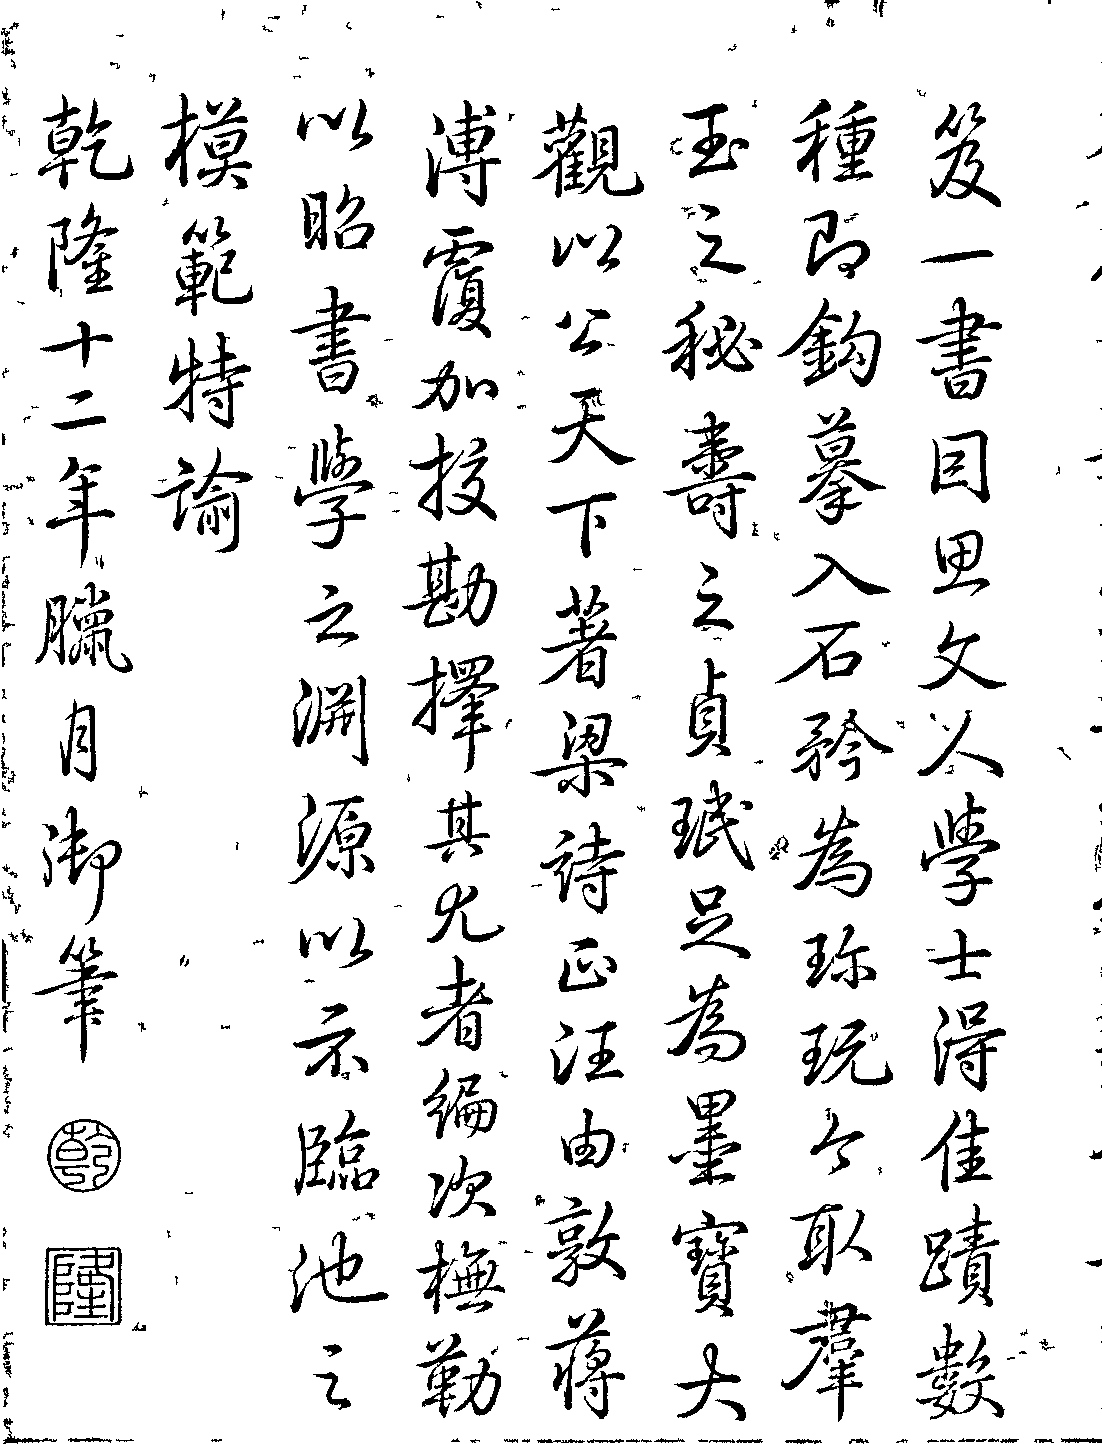 笈一書目思文人學士得佳蹟數
種即鈎摹入石矜為珎玩今取羣
玉之秘壽之貞珉足為墨寶大
觀以公天下著梁詩正汪由敦蔣
溥覆加挍勘擇其尤者編次橅勒
以昭書學之淵源以示臨池之
模範特諭
乾隆十二年臘月御筆
乾
隆